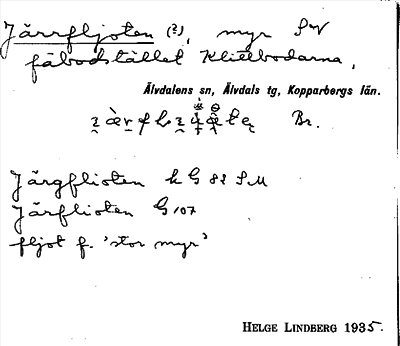 Järrfljoten (?), myr SV
fäbodstället Klittbodarna,
Älvdalens sn, Älvdals tg, Kopparbergs län.
Br.
Järgflioten k G 82 SM
Järflioten G 107
fljot f. 'stor myr'
HELGE LINDBERG 1935.